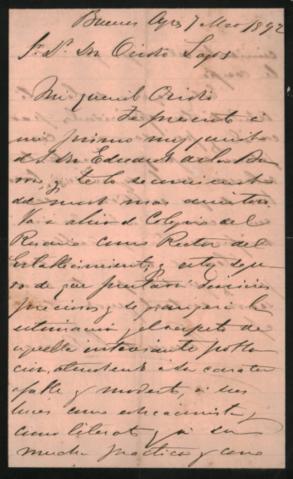 Buenos Ayres 7 Mzo 1892
Sr. Dr. Don Ovidio Lagos
Mi querido Ovidio
Te presento a
mi primo muy querido
el Sr. Don Eduardo de la Ba
rra, y te lo recomiendo
del modo mas
Va a abrir el Colegio del
Rosario como Rector del
Establecimiento, y estoy segu
ro de que prestará servicios
preciosos y se granjeará la
estimacion y el respeto de
aquella interesante pobla
cion, atendiendo a su caracter
afable y modesto, a sus
luces como educacionista y
como literato, y a su
mucha practica y como